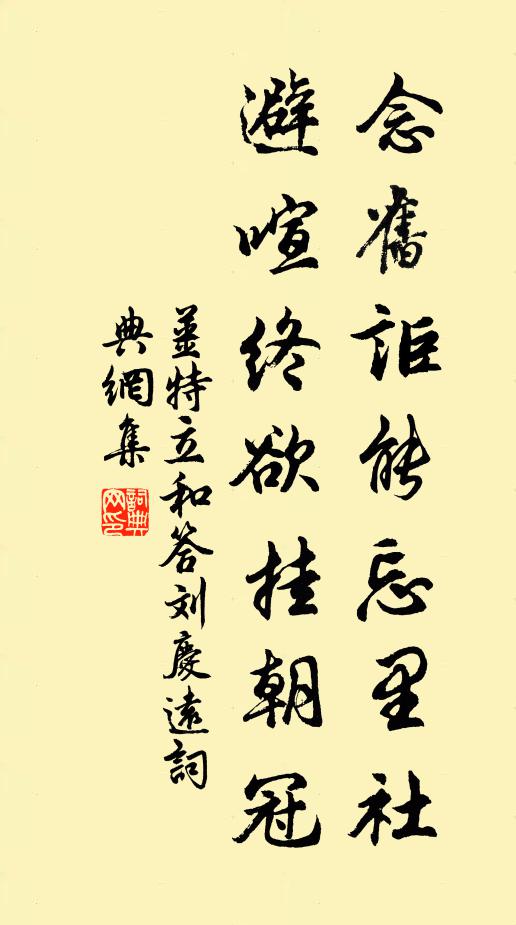 念舊詎能忘里社
避喧終欲挂朝冠
姜特立和答刘慶遠詞
典網集
詞典
网印